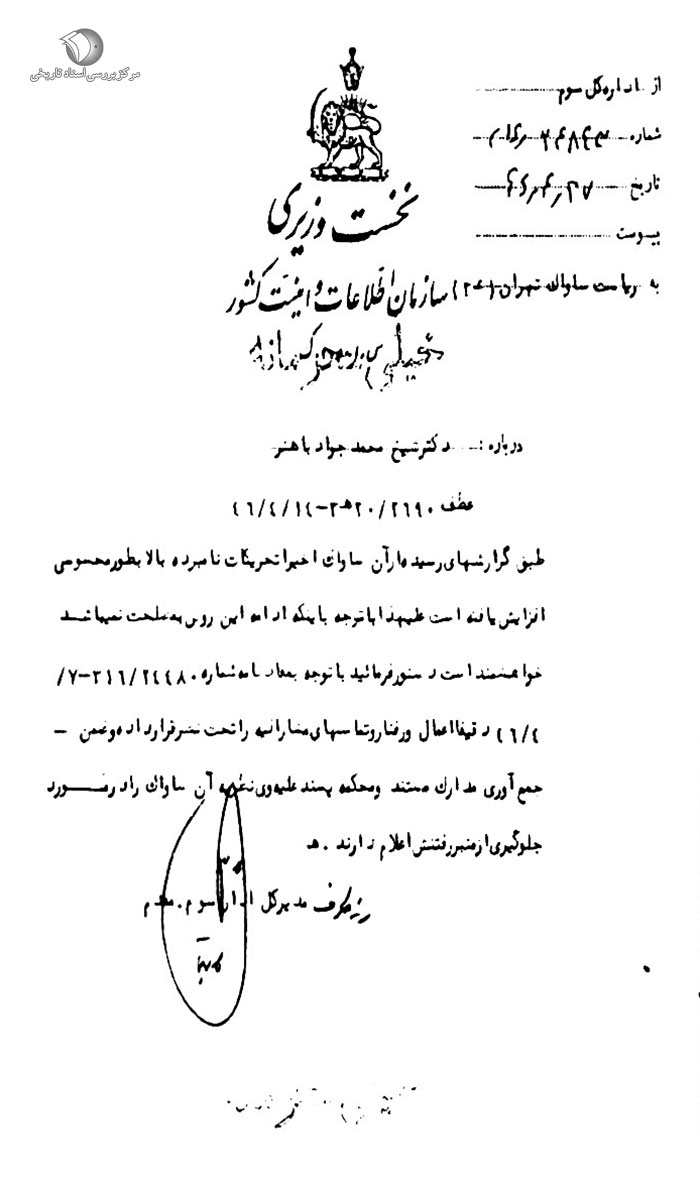 مرکز بررسی اسناد تاریخی
از اداره کل سوم
شماره
تاریخ ۴۶٫۴٫۲۷
پیوست
نخست وزیری
سازمان اطلاعات و امنیت کشور
به ریاست ساواک تهران (۲۰ﻫ)
خیلی محرمانه
درباره : دکتر شیخ محمد جواد باهنر
عطف ۲۰/۲۶۹۰ﻫ۲–۴۶/۴/۱۴
طبق گزارشهای رسیده از آن ساواک اخیرا تحریکات نامبرده بالا بطور محسوسی
افزایش یافته است علیهذا با توجه باینکه ادامه این روش به مصلحت نمیباشد
خواهشمند است دستور فرمائید با توجه بمفاد نامه شماره ۳۱۶/۲۴۴۸۰–۷/
۴۶/۴ دقیقا اعمال و رفتار و تماسهای مشارالیه را تحت نظر قرار داده و ضمن –
جمع آوری مدارک مستند و محکمه پسند علیه وی نظریه آن ساواک را در مورد
جلوگیری از منبر رفتنش اعلام دارند . ﻫ
مدیر کل اداره سوم . مقدم